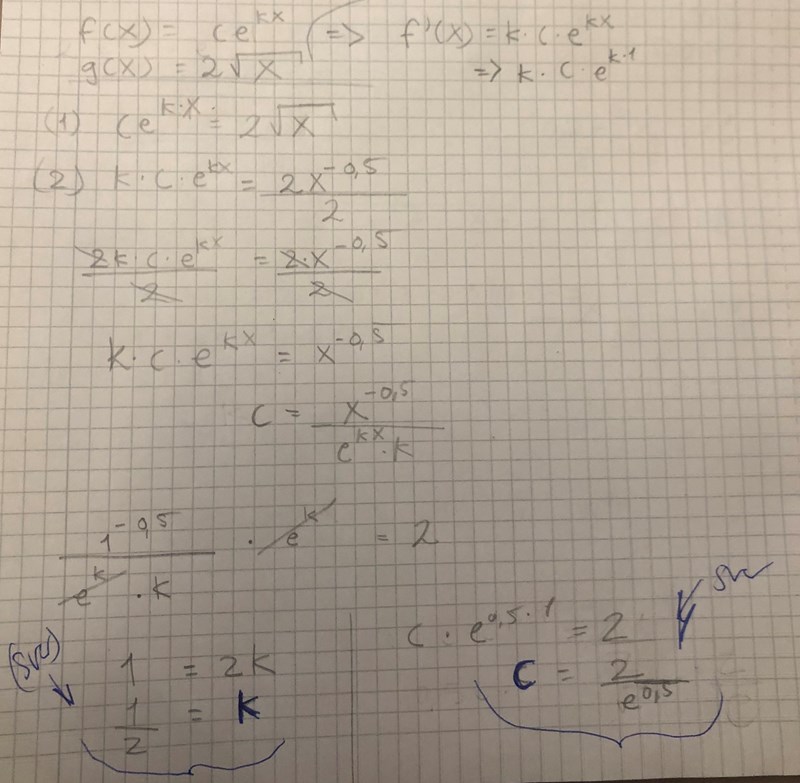 f(x) = Ce^{kx} => f'(x) = k·C·e^{kx}
g(x) = 2√x => k·C·e^{k·1}
(1) Ce^{k·x} = 2√x
(2) k·C·e^{kx} = 2x^{-0,5}/2
2k·C·e^{kx}/2 = 2·x^{-0,5}/2
k·C·e^{kx} = x^{-0,5}
C = x^{-0,5}/(e^{kx}·k)
1^{-0,5}/(e^k·k) · e^k = 2
C·e^{0,5·1} = 2 Svar
(Svar) 1 = 2k
C = 2/e^{0,5}
1/2 = k